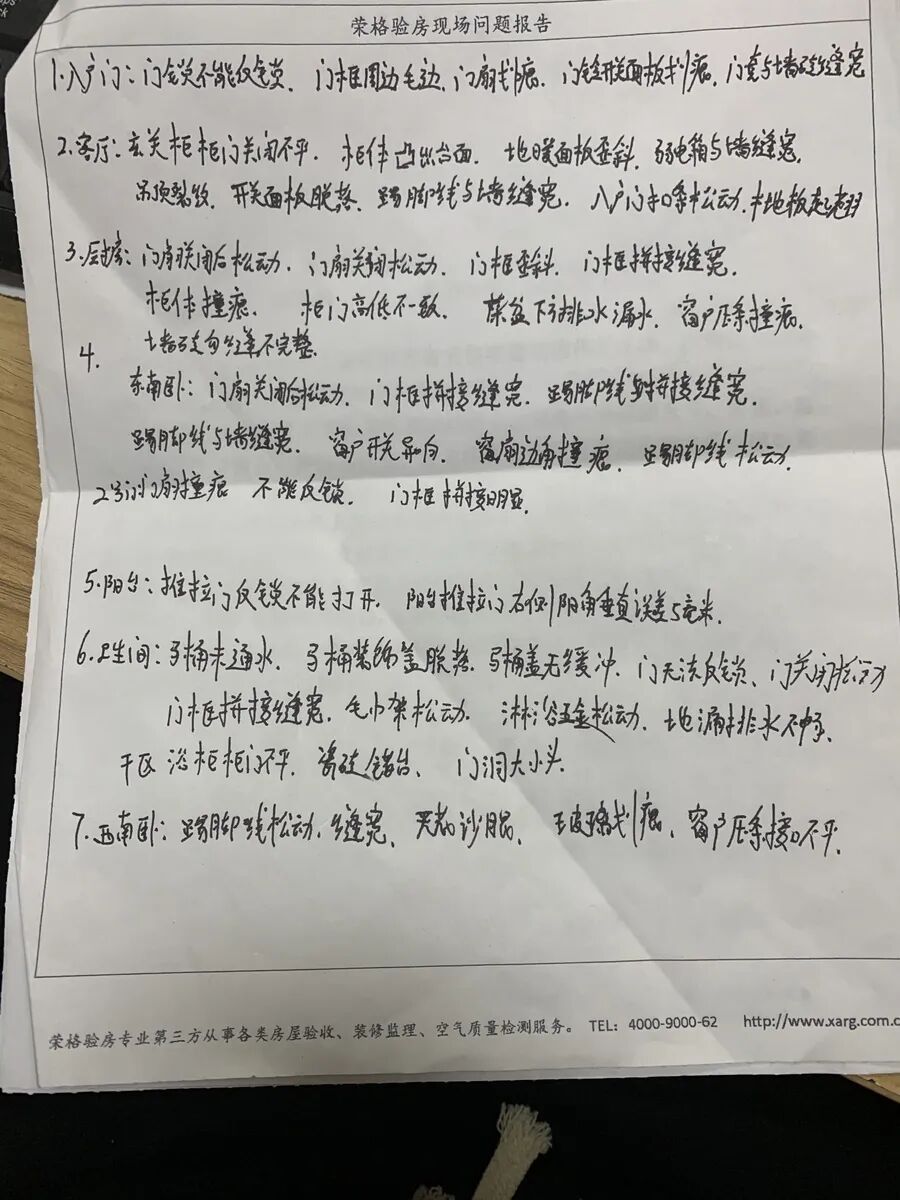 荣格验房现场问题报告
1.入户门：门锁不能反锁．门框周边毛边．门扇划痕．门锁开关面板划痕．门套与墙砖缝宽
2.客厅：玄关柜柜门关闭不平．柜体凸出台面．地暖面板歪斜．弱电箱与墙缝宽．
吊顶裂纹．开关面板脱落．踢脚线与墙缝宽．入户门扣条松动．木地板起翘
3.厨房：门扇关闭后松动．门扇关闭松动．门框歪斜．门框拼接缝宽．
柜体撞痕．柜门高低不一致．菜盆下方排水漏水．窗户压条撞痕．
墙砖勾缝不完整．
4.
东南卧：门扇关闭后松动．门框拼接缝宽．踢脚线拼接缝宽．
踢脚线与墙缝宽．窗户开关异响．窗扇边角撞痕．踢脚线松动．
门扇撞痕 不能反锁．门框拼接明显．
5.阳台：推拉门反锁不能打开．阳台推拉门右侧阴角垂直误差5毫米．
6.卫生间：马桶未通水．马桶装饰盖脱落．马桶盖无缓冲．门无法反锁、门关闭松动
门框拼接缝宽．毛巾架松动．淋浴五金松动．地漏排水不畅．
干区浴柜柜门不平．瓷砖错台、门洞大小头．
7.西南卧：踢脚线松动．缝宽．玻璃划痕、窗户压条接口不平．
荣格验房专业第三方从事各类房屋验收、装修监理、空气质量检测服务。 TEL：4000-9000-62 http://www.xarg.com.c